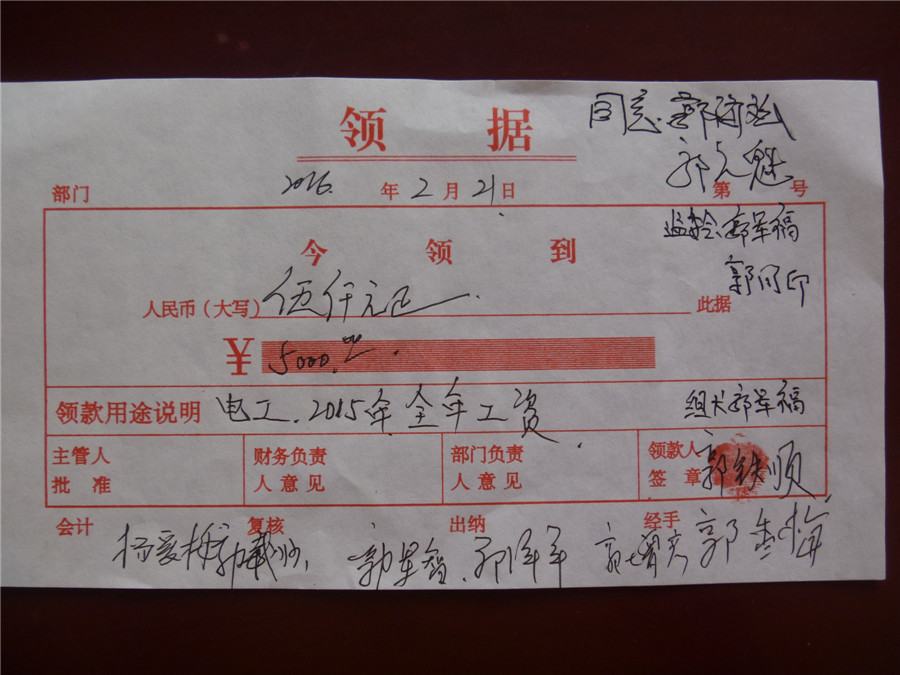 领 据
同意 郭
郭 魁
部门 2016 年 2 月 21 日 第 号
监会 郭军福
今 领 到
郭同印
人民币（大写） 伍仟元正 此据
￥ 5000.00
领款用途说明 电工.2015年全年工资
组长郭军福
主管人 批 准 财务负责 人意见 部门负责 人意见 领款人 签 章 郭铁顺
会计 复核 出纳 经手
杨爱梅 郭军智 郭 郭 梅